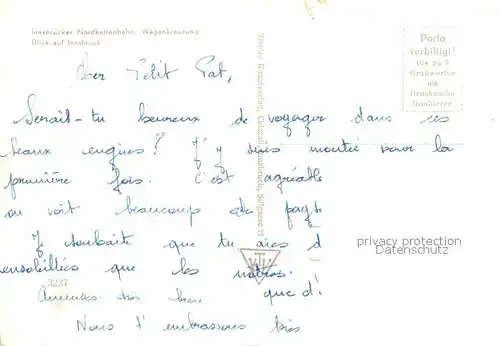 Innsbrucker Nordkettenbahn, Wagenkreuzung
Blick auf Innsbruck
Porto
verbilligt!
Bis zu 5
Grußworten
als
Drucksache
frankieren
Cher Petit Pat,
Serait-tu heureux de voyager dans ces
beaux engins? J'y suis montée pour la
première fois. C'est agréable
on voit beaucoup de pays
Je souhaite que tu aies d
ensoleillées que les nôtres.
Amuses-toi bien que d'
Nous t'embrassons très
3237
Tiroler Kunstverlag Chizzali, Innsbruck, Sillgasse 11
TKV
privacy protection
Datenschutz